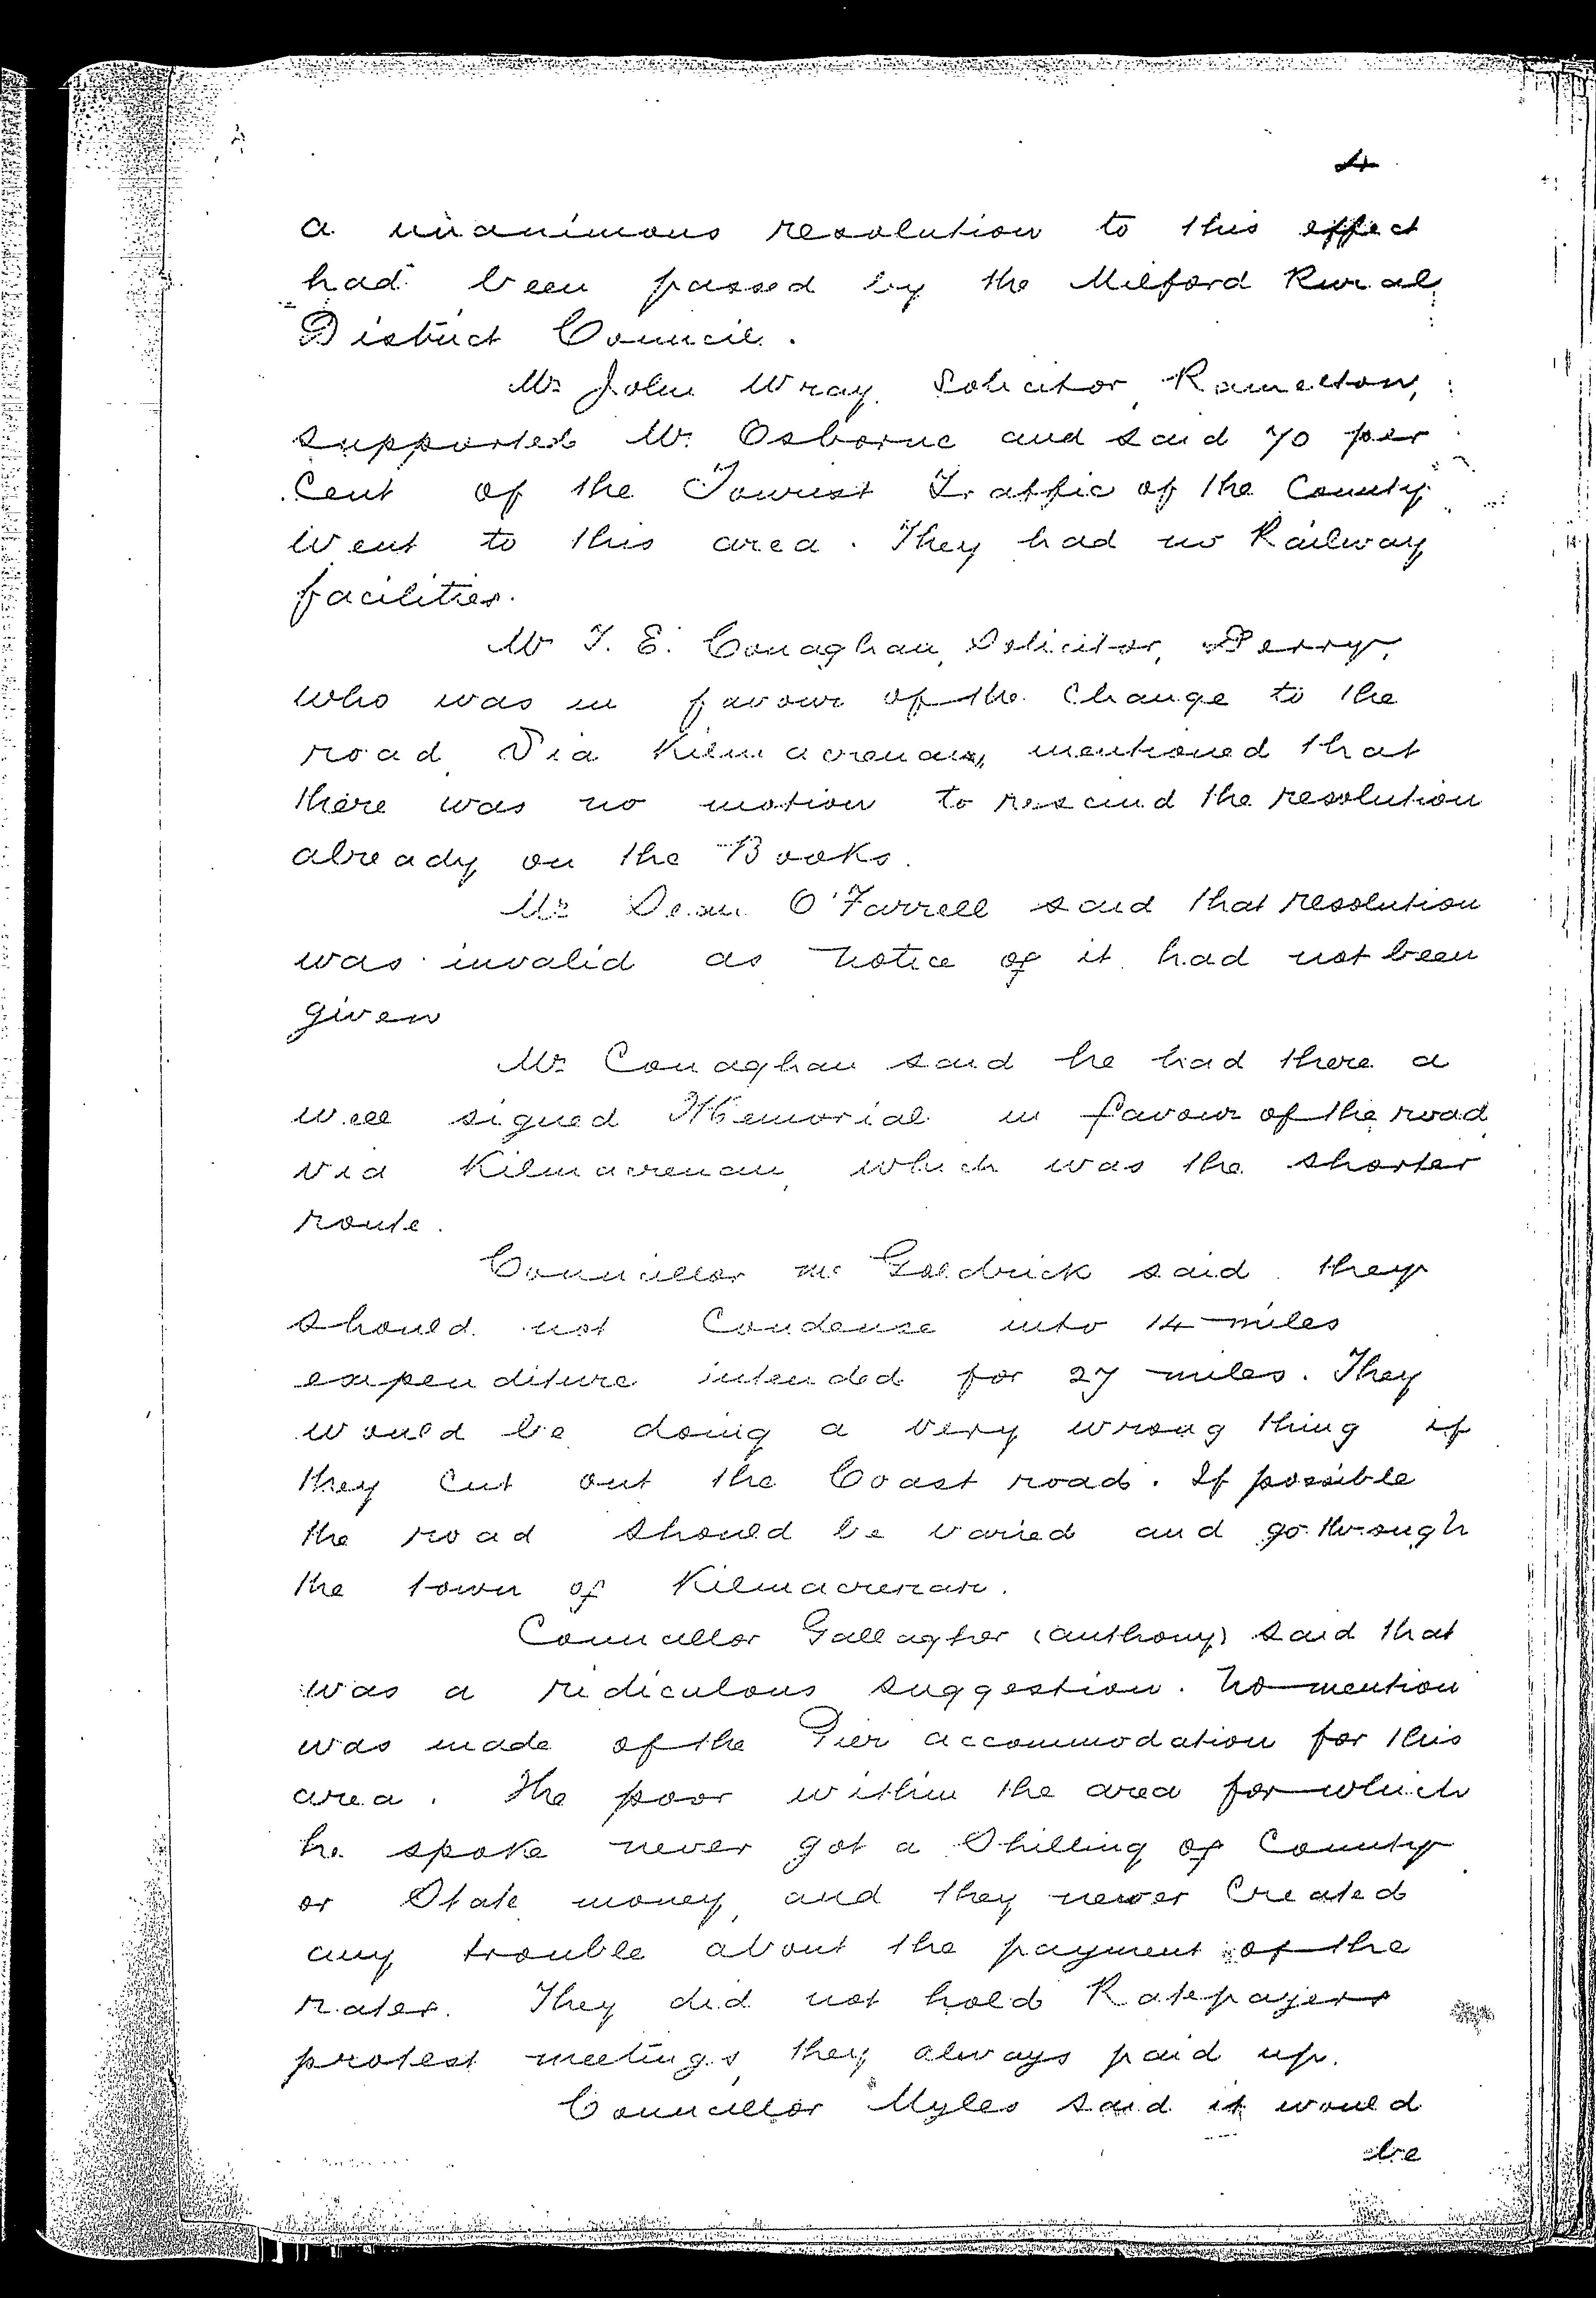 4
a unanimous resolution to this effect
had been passed by the Milford Rural
District Council.
Mr John Wray, Solicitor, Ramelton,
supported Mr Osborne and said 70 per
Cent of the Tourist Traffic of the County
went to this area. They had no Railway
facilities.
Mr T. E. Conaghan, Solicitor, Derry,
who was in favour of the Change to the
road Via Kilmacrenan, mentioned that
there was no motion to rescind the resolution
already on the Books.
Mr Dean O'Farrell said that resolution
was invalid as notice of it had not been
given
Mr Conaghan said he had there a
well signed Memorial in favour of the road
via Kilmacrenan, which was the shorter
route.
Councillor Mc Goldrick said they
should not Condense into 14 miles
expenditure intended for 27 miles. They
would be doing a very wrong thing if
they cut out the Coast road. If possible
the road should be varied and go through
the town of Kilmacrenan.
Councillor Gallagher (Anthony) said that
was a ridiculous suggestion. No mention
was made of the Pier accommodation for this
area. The poor within the area for which
he spoke never got a Shilling of County
or State money, and they never Created
any trouble about the payment of the
rates. They did not hold Ratepayers
protest meetings, they always paid up.
Councillor Myles said it would
be